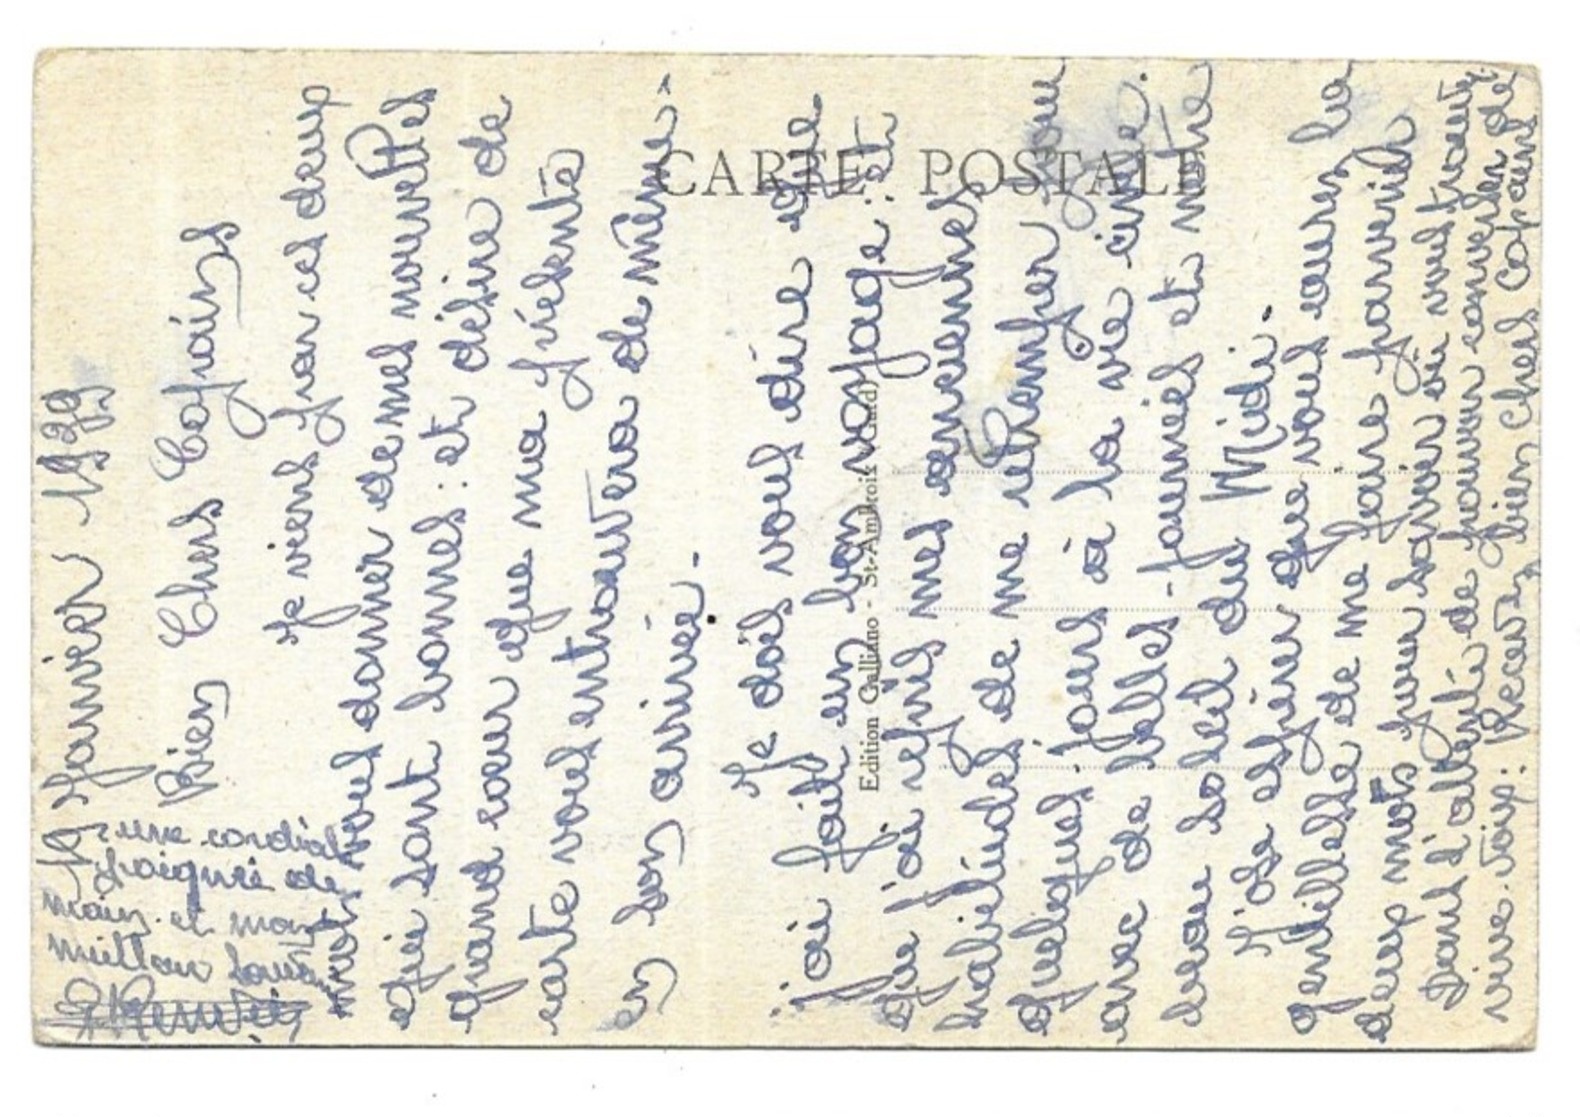 19 Janvier 1939
Bien Chers Copains
Je viens par ces deux
mots vous donner de mes nouvelles
qui sont bonnes : et désire de
grand cœur que ma présente
carte vous entrouvera de même
en son arrivée.
Je dois vous dire que
j'ai fait un bon voyage : et
que j'ai repris mes anciennes
habitudes de me retremper pour
quelques jours à la vie civile.
avec de belles journées et notre
beau soleil du Midi.
J'ose espérer que vous aurez la
gentillesse de me faire parvenir
deux mots pour savoir où vous trouvez.
Dans l'attente de pouvoir converser de
vive-voix : Recevez bien chers copains
une cordiale
poignée de
main et mon
meilleur
CARTE POSTALE
Edition Galliano - St-Ambroix (Gard)